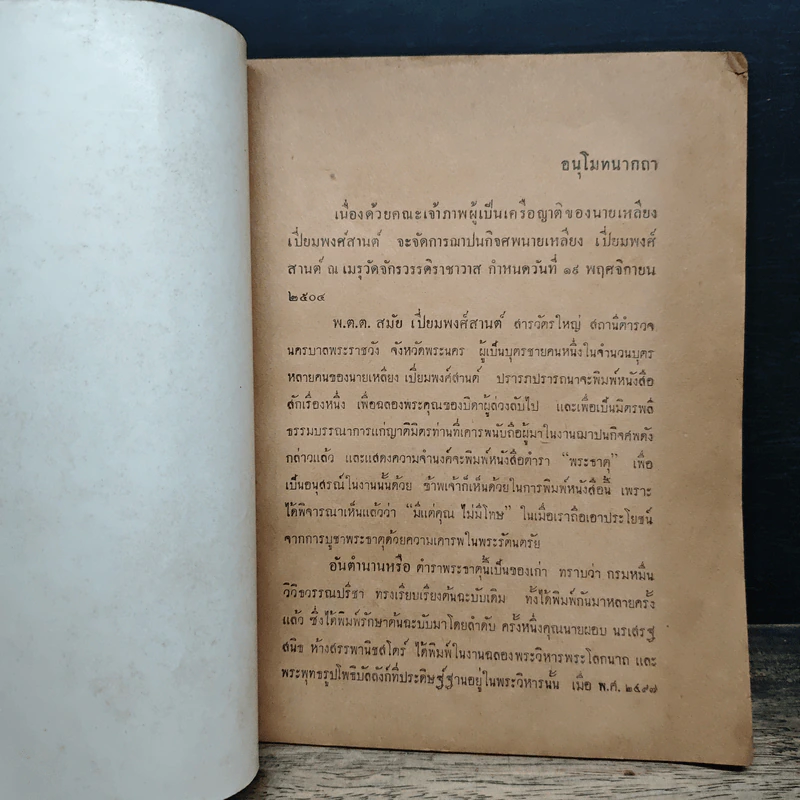 อนุโมทนากถา
เนื่องด้วยคณะเจ้าภาพผู้เป็นเครือญาติของนายเหลียง
เปี่ยมพงศ์สานต์ จะจัดการฌาปนกิจศพนายเหลียง เปี่ยมพงศ์
สานต์ ณ เมรุวัดจักรวรรดิราชาวาส กำหนดวันที่ ๑๙ พฤศจิกายน
๒๕๐๔
พ.ต.ต. สมัย เปี่ยมพงศ์สานต์ สารวัตรใหญ่ สถานีตำรวจ
นครบาลพระราชวัง จังหวัดพระนคร ผู้เป็นบุตรชายคนหนึ่งในจำนวนบุตร
หลายคนของนายเหลียง เปี่ยมพงศ์สานต์ ปรารภปรารถนาจะพิมพ์หนังสือ
สักเรื่องหนึ่ง เพื่อฉลองพระคุณของบิดาผู้ล่วงลับไป และเพื่อเป็นมิตรพลี
ธรรมบรรณาการแก่ญาติมิตรท่านที่เคารพนับถือผู้มาในงานฌาปนกิจศพดัง
กล่าวแล้ว และแสดงความจำนงค์จะพิมพ์หนังสือตำรา “พระธาตุ” เพื่อ
เป็นอนุสรณ์ในงานนั้นด้วย ข้าพเจ้าก็เห็นด้วยในการพิมพ์หนังสือนี้ เพราะ
ได้พิจารณาเห็นแล้วว่า “มีแต่คุณ ไม่มีโทษ” ในเมื่อเราถือเอาประโยชน์
จากการบูชาพระธาตุด้วยความเคารพในพระรัตนตรัย
อันตำนานหรือ ตำราพระธาตุนี้เป็นของเก่า ทราบว่า กรมหมื่น
วิวิธวรรณปรีชา ทรงเรียบเรียงต้นฉะบับเดิม ทั้งได้พิมพ์กันมาหลายครั้ง
แล้ว ซึ่งได้พิมพ์รักษาต้นฉะบับมาโดยลำดับ ครั้งหนึ่งคุณนายผอบ นรเสรฐ
สนิธ ห้างสรรพานิชสโตร์ ได้พิมพ์ในงานฉลองพระวิหารพระโลกนาถ และ
พระพุทธรูปโพธิบัลลังก์ที่ประดิษฐ์ฐานอยู่ในพระวิหารนั้น เมื่อ พ.ศ. ๒๔๙๗